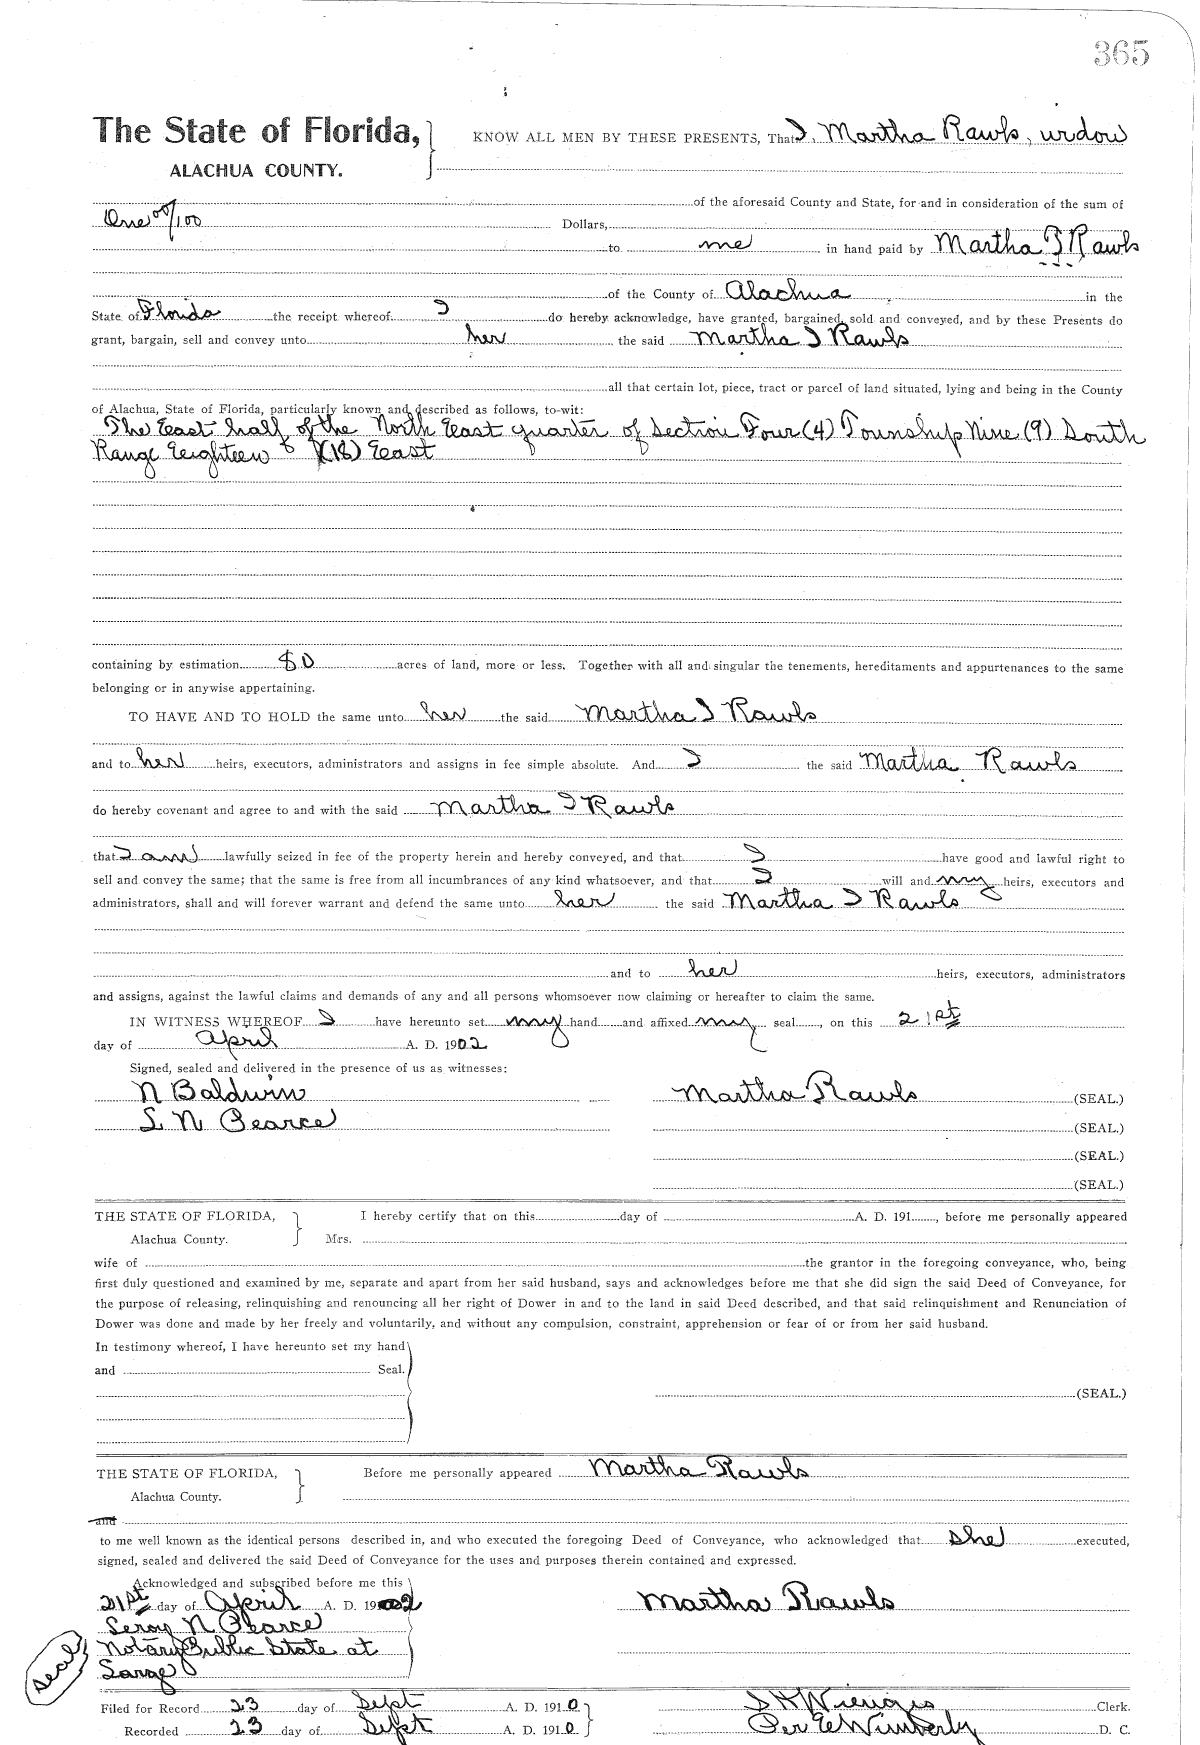 365
The State of Florida, KNOW ALL MEN BY THESE PRESENTS, That I, Martha Rawls, widow
ALACHUA COUNTY.
of the aforesaid County and State, for and in consideration of the sum of
One 00/100 Dollars,
to me in hand paid by Martha I Rawls
of the County of Alachua in the
State of Florida the receipt whereof I do hereby acknowledge, have granted, bargained, sold and conveyed, and by these Presents do
grant, bargain, sell and convey unto her the said Martha I Rawls
all that certain lot, piece, tract or parcel of land situated, lying and being in the County
of Alachua, State of Florida, particularly known and described as follows, to-wit:
The East half of the North East quarter of Section Four (4) Township Nine (9) South
Range Eighteen (18) East
containing by estimation 80 acres of land, more or less. Together with all and singular the tenements, hereditaments and appurtenances to the same
belonging or in anywise appertaining.
TO HAVE AND TO HOLD the same unto her the said Martha I Rawls
and to her heirs, executors, administrators and assigns in fee simple absolute. And I the said Martha Rawls
do hereby covenant and agree to and with the said Martha I Rawls
that I am lawfully seized in fee of the property herein and hereby conveyed, and that I have good and lawful right to
sell and convey the same; that the same is free from all incumbrances of any kind whatsoever, and that I will and my heirs, executors and
administrators, shall and will forever warrant and defend the same unto her the said Martha I Rawls
and to her heirs, executors, administrators
and assigns, against the lawful claims and demands of any and all persons whomsoever now claiming or hereafter to claim the same.
IN WITNESS WHEREOF I have hereunto set my hand and affixed my seal, on this 21st
day of April A. D. 1902
Signed, sealed and delivered in the presence of us as witnesses:
N Baldwin Martha Rawls (SEAL.)
L N Pearce (SEAL.)
(SEAL.)
(SEAL.)
THE STATE OF FLORIDA, I hereby certify that on this day of A. D. 191, before me personally appeared
Alachua County. Mrs.
wife of the grantor in the foregoing conveyance, who, being
first duly questioned and examined by me, separate and apart from her said husband, says and acknowledges before me that she did sign the said Deed of Conveyance, for
the purpose of releasing, relinquishing and renouncing all her right of Dower in and to the land in said Deed described, and that said relinquishment and Renunciation of
Dower was done and made by her freely and voluntarily, and without any compulsion, constraint, apprehension or fear of or from her said husband.
In testimony whereof, I have hereunto set my hand
and Seal.
(SEAL.)
THE STATE OF FLORIDA, Before me personally appeared Martha Rawls
Alachua County.
and
to me well known as the identical persons described in, and who executed the foregoing Deed of Conveyance, who acknowledged that she executed,
signed, sealed and delivered the said Deed of Conveyance for the uses and purposes therein contained and expressed.
Acknowledged and subscribed before me this
21st day of April A. D. 1902 Martha Rawls
Leroy N Pearce
Notary Public State at
Large
Seal
Filed for Record 23 day of Sept A. D. 1910 S H Wienges Clerk.
Recorded 23 day of Sept A. D. 1910 Per E Wimberly D. C.